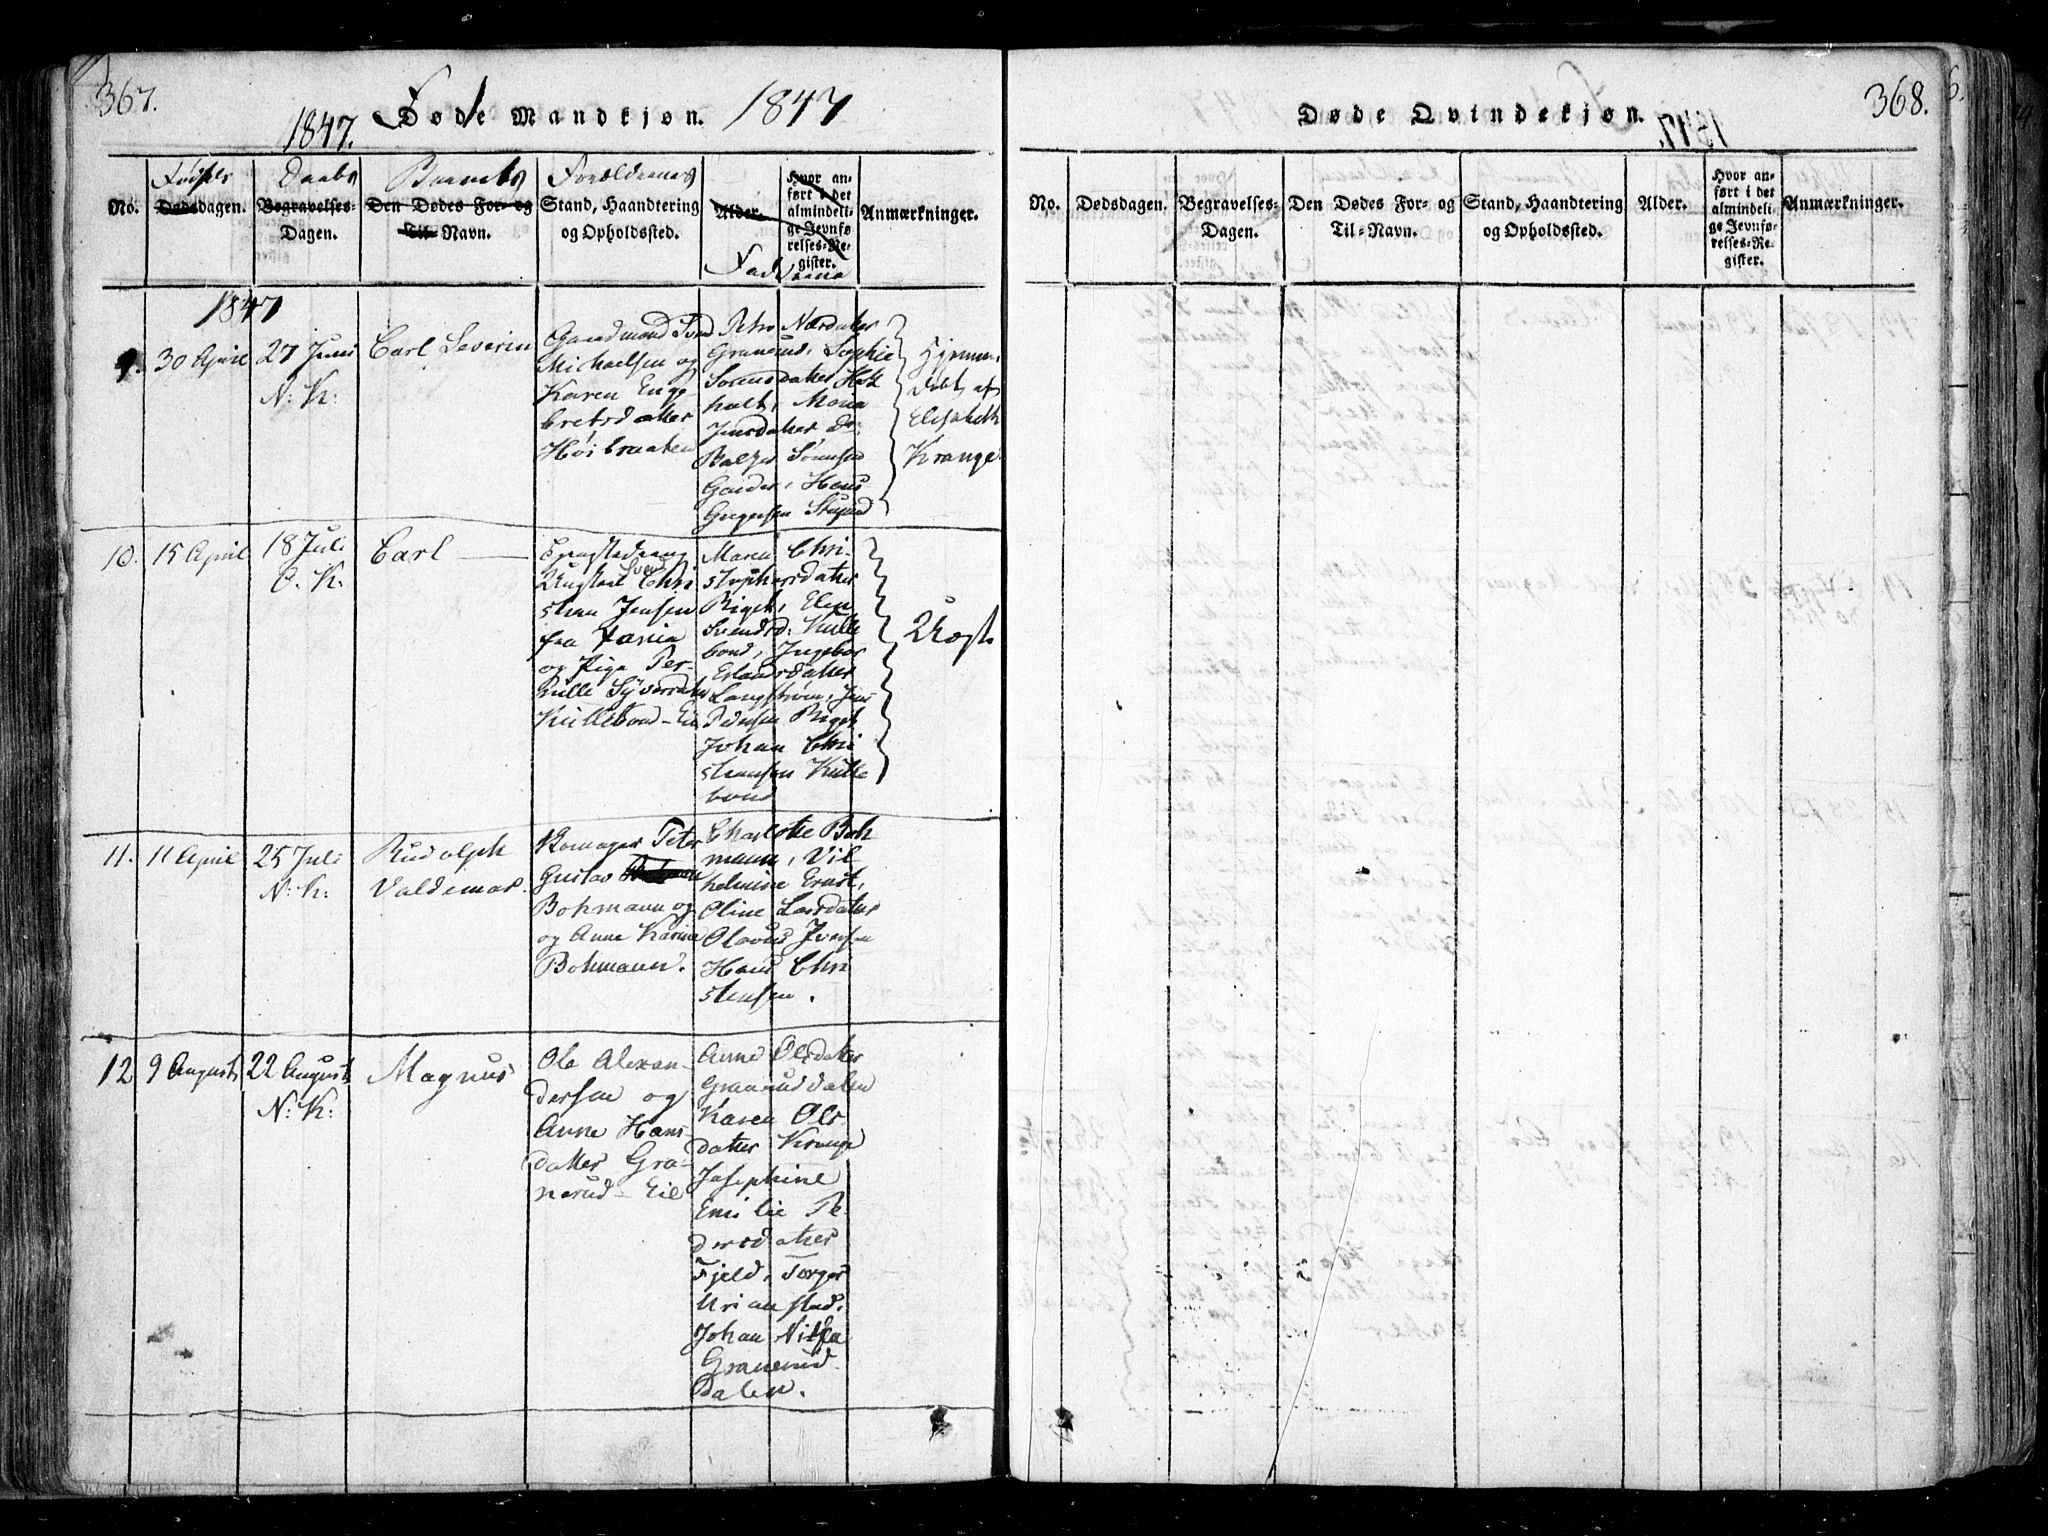 367.
Føde Mandkjøn. 1847
1847.
No.
Fødsels
Dødsdagen.
Daabs
Begravelses-
Dagen.
Barnets
Den Dødes For- og
Til-Navn.
Forældrenes
Stand, Haandtering
og Opholdssted.
Alder.
Hvor an-
ført i det
almindeli-
ge Jevnfø-
relses-Re-
gister.
Faddrane
Anmærkninger.
1847
9. 30 April
27 Juni
N: K:
Carl Severin
Gaardmand Svend
Michaelsen og
Karen Enge-
bretsdatter
Høibraaten
Petro Nærdatter
Granerud, Sophie
Sørensdatter Holt
holt, Maria
Jensdatter do:
Balzer Sørensen
Garder, Hans
Gregersen Stuerud
Hjemme-
døbt af
Elisabeth
Krange
10. 15 April
18 Juli
O. K:
Carl
Ungkarl Svend Chri
stian Jensen
fra
og Pige Per-
nille Syversdatter
Kullebund - Eie
Maren Chri-
stophersdatter
Riget, Elen
Svendsd: Kulle
bond, Ingebor
Erlandsdatter
Langstrøm, Jens
Pedersen Riget
Johan Chri
stiansen Kulle
bond
Uægt.
11. 11 April
25 Juli
N: K:
Rudolph
Valdemar.
Peter
Gustav
Bohmann og
og Anne Karine
Bohmann.
Charlotte Boh
mann, Vil
helmine Ernst,
Oline Larsdatter
Olavus Iversen
Hans Chri
stensen.
12 9 August
22 August
N: K:
Magnus
Ole Alexan-
dersen og
Anne Hans-
datter Gra-
nerud - Eie
Anne Olsdatter
Graneruddalen
Karen Ols-
datter Krange
Josephine
Emilie Pe-
dersdatter
Fjeld, Torger
Urianstad.
Johan Nilsen
Granerud-
Dalen.
368.
Døde Qvindekjøn.
1847.
No.
Dødsdagen.
Begravelses-
Dagen.
Den Dødes For- og
Til-Navn.
Stand, Haandtering
og Opholdssted.
Alder.
Hvor an-
ført i det
almindeli-
ge Jevnfø-
relses-Re-
gister.
Anmærkninger.